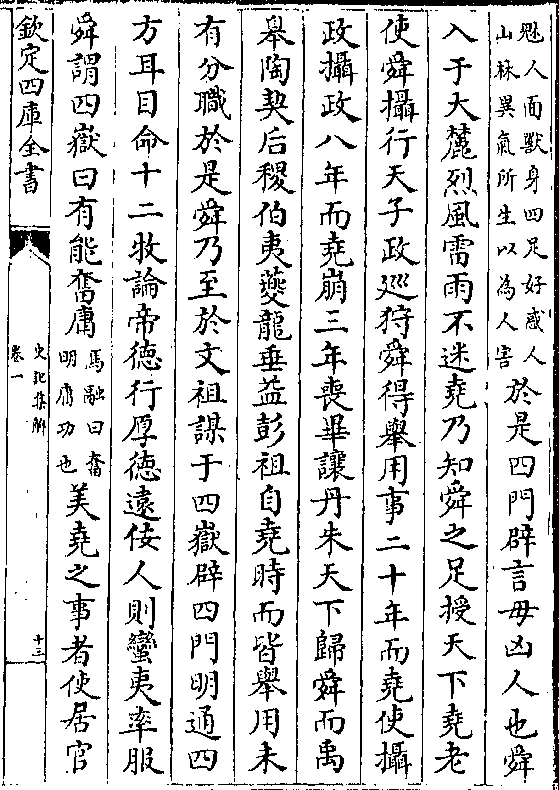 魅人面獸身四足好惑人
山林異氣所生以為人害
於是四門辟言毋凶人也舜
入于大麓烈風雷雨不迷堯乃知舜之足授天下堯老
使舜攝行天子政巡狩舜得舉用事二十年而堯使攝
政攝政八年而堯崩三年喪畢讓丹朱天下歸舜而禹
皋陶契后稷伯夷夔龍垂益彭祖自堯時而皆舉用未
有分職於是舜乃至於文祖謀于四嶽辟四門明通四
方耳目命十二牧論帝德行厚德遠佞人則蠻夷率服
舜謂四嶽曰有能奮庸
馬融曰奮
明庸功也
美堯之事者使居官
欽定四庫全書
史記集解
卷一
十三